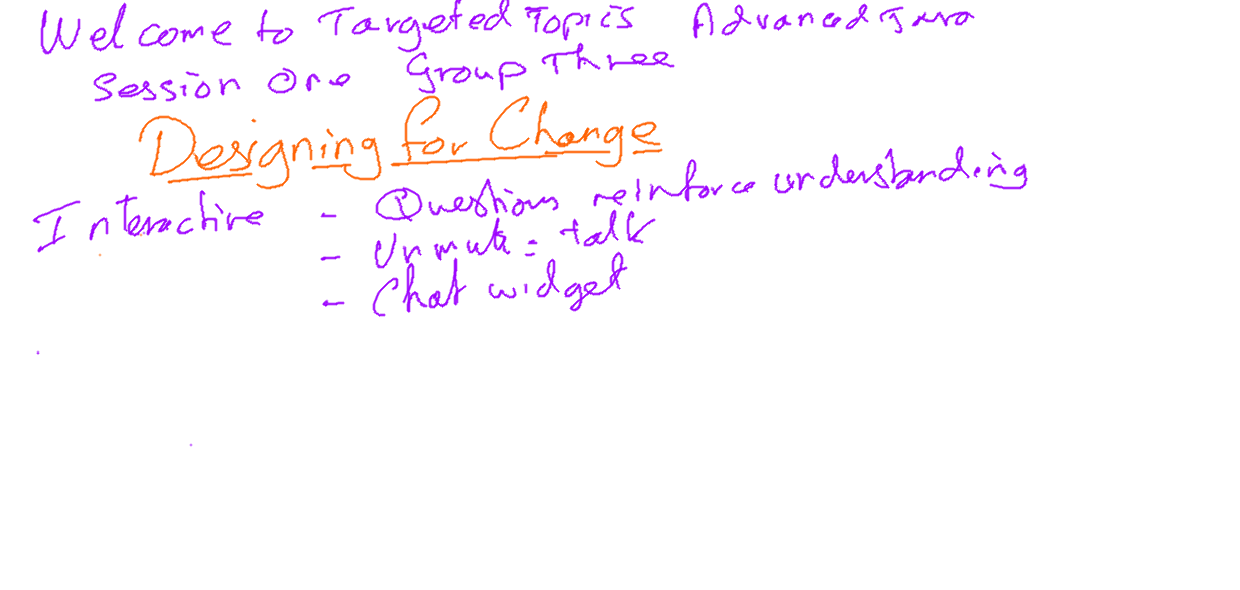 Welcome to Targeted Topics Advanced Java
Session One Group Three
Designing for Change
Interactive - Questions reinforce understanding
- Unmute = talk
- Chat widget